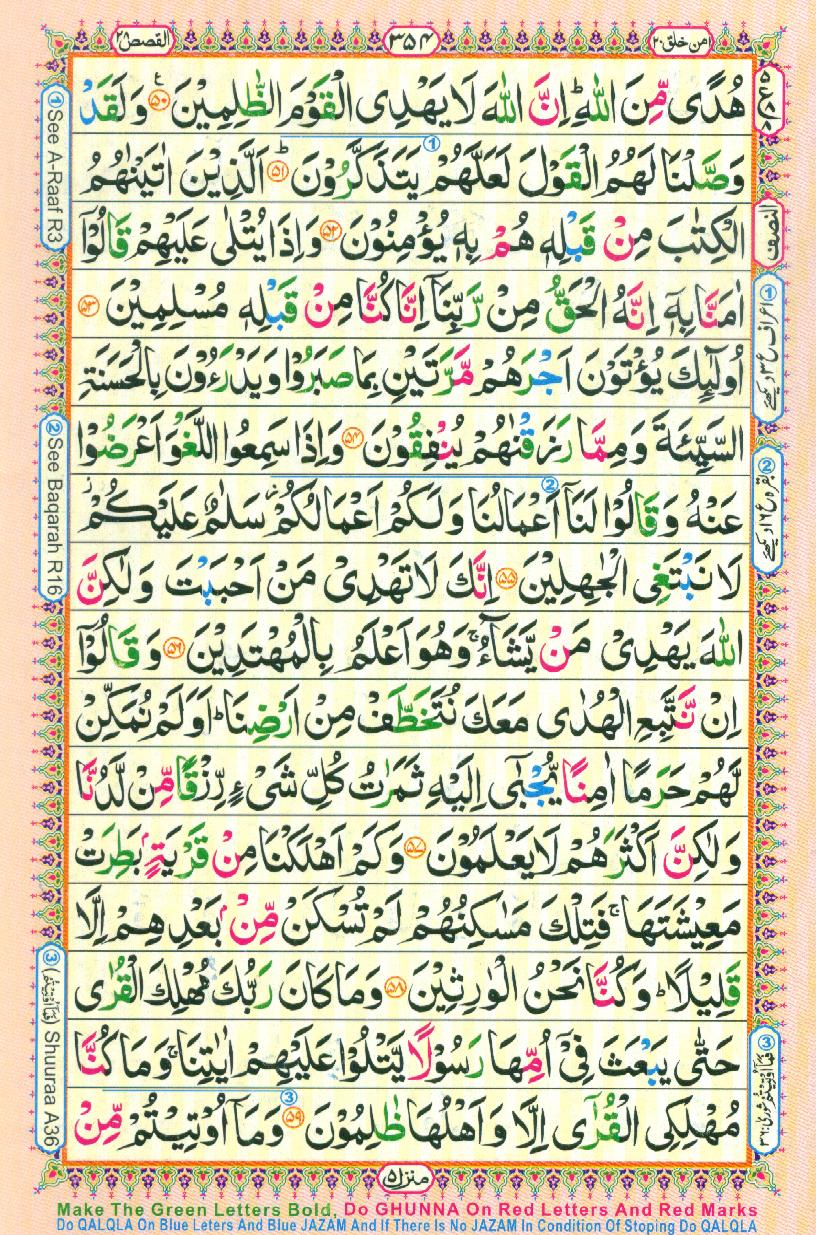 امن خلق۲۰
۳۵۴
القصص۲۸
هُدًى مِّنَ اللّٰهِ ؕ اِنَّ اللّٰهَ لَا يَهْدِى الْقَوْمَ الظّٰلِمِيْنَ ۵۰ وَلَقَدْ
وَصَّلْنَا لَهُمُ الْقَوْلَ لَعَلَّهُمْ يَتَذَكَّرُوْنَ ؕ ۵۱ اَلَّذِيْنَ اٰتَيْنٰهُمُ
الْكِتٰبَ مِنْ قَبْلِهٖ هُمْ بِهٖ يُؤْمِنُوْنَ ۵۲ وَاِذَا يُتْلٰى عَلَيْهِمْ قَالُوْۤا
اٰمَنَّا بِهٖۤ اِنَّهُ الْحَقُّ مِنْ رَّبِّنَاۤ اِنَّا كُنَّا مِنْ قَبْلِهٖ مُسْلِمِيْنَ ۵۳
اُولٰٓئِكَ يُؤْتَوْنَ اَجْرَهُمْ مَّرَّتَيْنِ بِمَا صَبَرُوْا وَيَدْرَءُوْنَ بِالْحَسَنَةِ
السَّيِّئَةَ وَمِمَّا رَزَقْنٰهُمْ يُنْفِقُوْنَ ۵۴ وَاِذَا سَمِعُوا اللَّغْوَ اَعْرَضُوْا
عَنْهُ وَقَالُوْا لَنَاۤ اَعْمَالُنَا وَلَكُمْ اَعْمَالُكُمْ سَلٰمٌ عَلَيْكُمْ
لَا نَبْتَغِى الْجٰهِلِيْنَ ۵۵ اِنَّكَ لَا تَهْدِىْ مَنْ اَحْبَبْتَ وَلٰكِنَّ
اللّٰهَ يَهْدِىْ مَنْ يَّشَآءُ ۚ وَهُوَ اَعْلَمُ بِالْمُهْتَدِيْنَ ۵۶ وَقَالُوْۤا
اِنْ نَّتَّبِعِ الْهُدٰى مَعَكَ نُتَخَطَّفْ مِنْ اَرْضِنَا ؕ اَوَلَمْ نُمَكِّنْ
لَّهُمْ حَرَمًا اٰمِنًا يُّجْبٰۤى اِلَيْهِ ثَمَرٰتُ كُلِّ شَىْءٍ رِّزْقًا مِّنْ لَّدُنَّا
وَلٰكِنَّ اَكْثَرَهُمْ لَا يَعْلَمُوْنَ ۵۷ وَكَمْ اَهْلَكْنَا مِنْ قَرْيَةٍۭ بَطِرَتْ
مَعِيْشَتَهَا ۚ فَتِلْكَ مَسٰكِنُهُمْ لَمْ تُسْكَنْ مِّنْۢ بَعْدِهِمْ اِلَّا
قَلِيْلًا ؕ وَكُنَّا نَحْنُ الْوٰرِثِيْنَ ۵۸ وَمَا كَانَ رَبُّكَ مُهْلِكَ الْقُرٰى
حَتّٰى يَبْعَثَ فِىْۤ اُمِّهَا رَسُوْلًا يَّتْلُوْا عَلَيْهِمْ اٰيٰتِنَا ۚ وَمَا كُنَّا
مُهْلِكِى الْقُرٰٓى اِلَّا وَاَهْلُهَا ظٰلِمُوْنَ ۵۹ وَمَاۤ اُوْتِيْتُمْ مِّنْ
منزل۵
① See A-Raaf R3
② See Baqarah R16
③ (فما اوتیتم) Shuuraa A36
النصف
① اعراف ع ۳ دیکھئے
Make The Green Letters Bold, Do GHUNNA On Red Letters And Red Marks
Do QALQLA On Blue Leters And Blue JAZAM And If There Is No JAZAM In Condition Of Stoping Do QALQLA